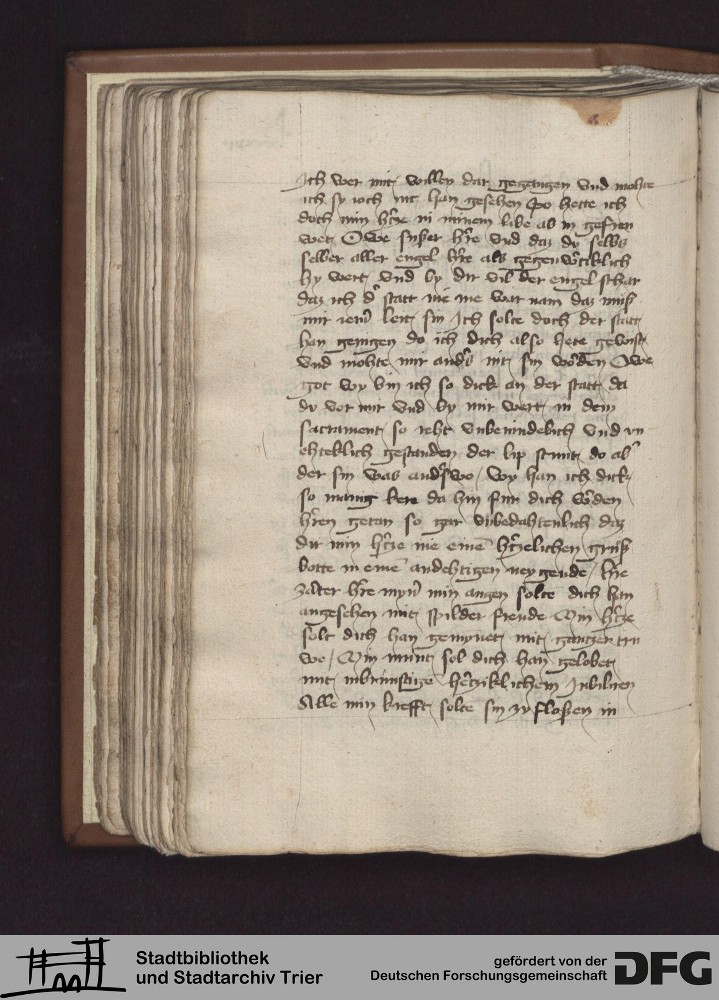 Ich wer mit willen dar gegangen vnd mohte
ich sy ioch nit han gesehen so hette ich
doch min hertze in minem libe ab in gefreu
wet Owe susser herre vnd daz du selbs
selber aller engel herre als gegenwurtiklich
hy wert vnd by dir vil der engel schar
daz ich der statt nie me war nam daz muß
mir iemer leit sin Ich solte doch der statt
han do ich dich also hete gewust
vnd mohte mir anders nit sin worden Owe
got wy bin ich so dick an der statt da
du vor mir vnd by mir wert in dem
sacrament so reht vnbe vnd vn
ehteklich gestanden der lip stunt do aber
der sin was anderswo wy han ich dick
so manig ken da hin fur dich werden
herren getan so gar vnbedahtenlich daz
dir min hertze nie einen hertzelichen gruß
botte in einem andehtigen neygende herre
zarter herre myner min augen solte dich han
angesehen mit spilder freude Min hertze
solt dich han gemynet mit gantzer tru
we Min munt sol dich han gelobet
mit inbrunstige hertziklichem Jubilieren
Alle min krefft solte sin zu floßen in
Stadtbibliothek
und Stadtarchiv Trier
gefördert von der
Deutschen Forschungsgemeinschaft
DFG